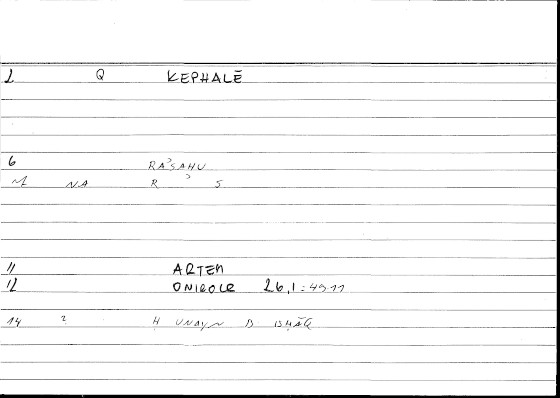 1 Q KEPHALĒ
6 RAʾSAHU
NA R ʾ S
11 ARTEM
12 ONIROCR 26,1:4911
14 2 Ḥ UNAYN B ISḤĀQ